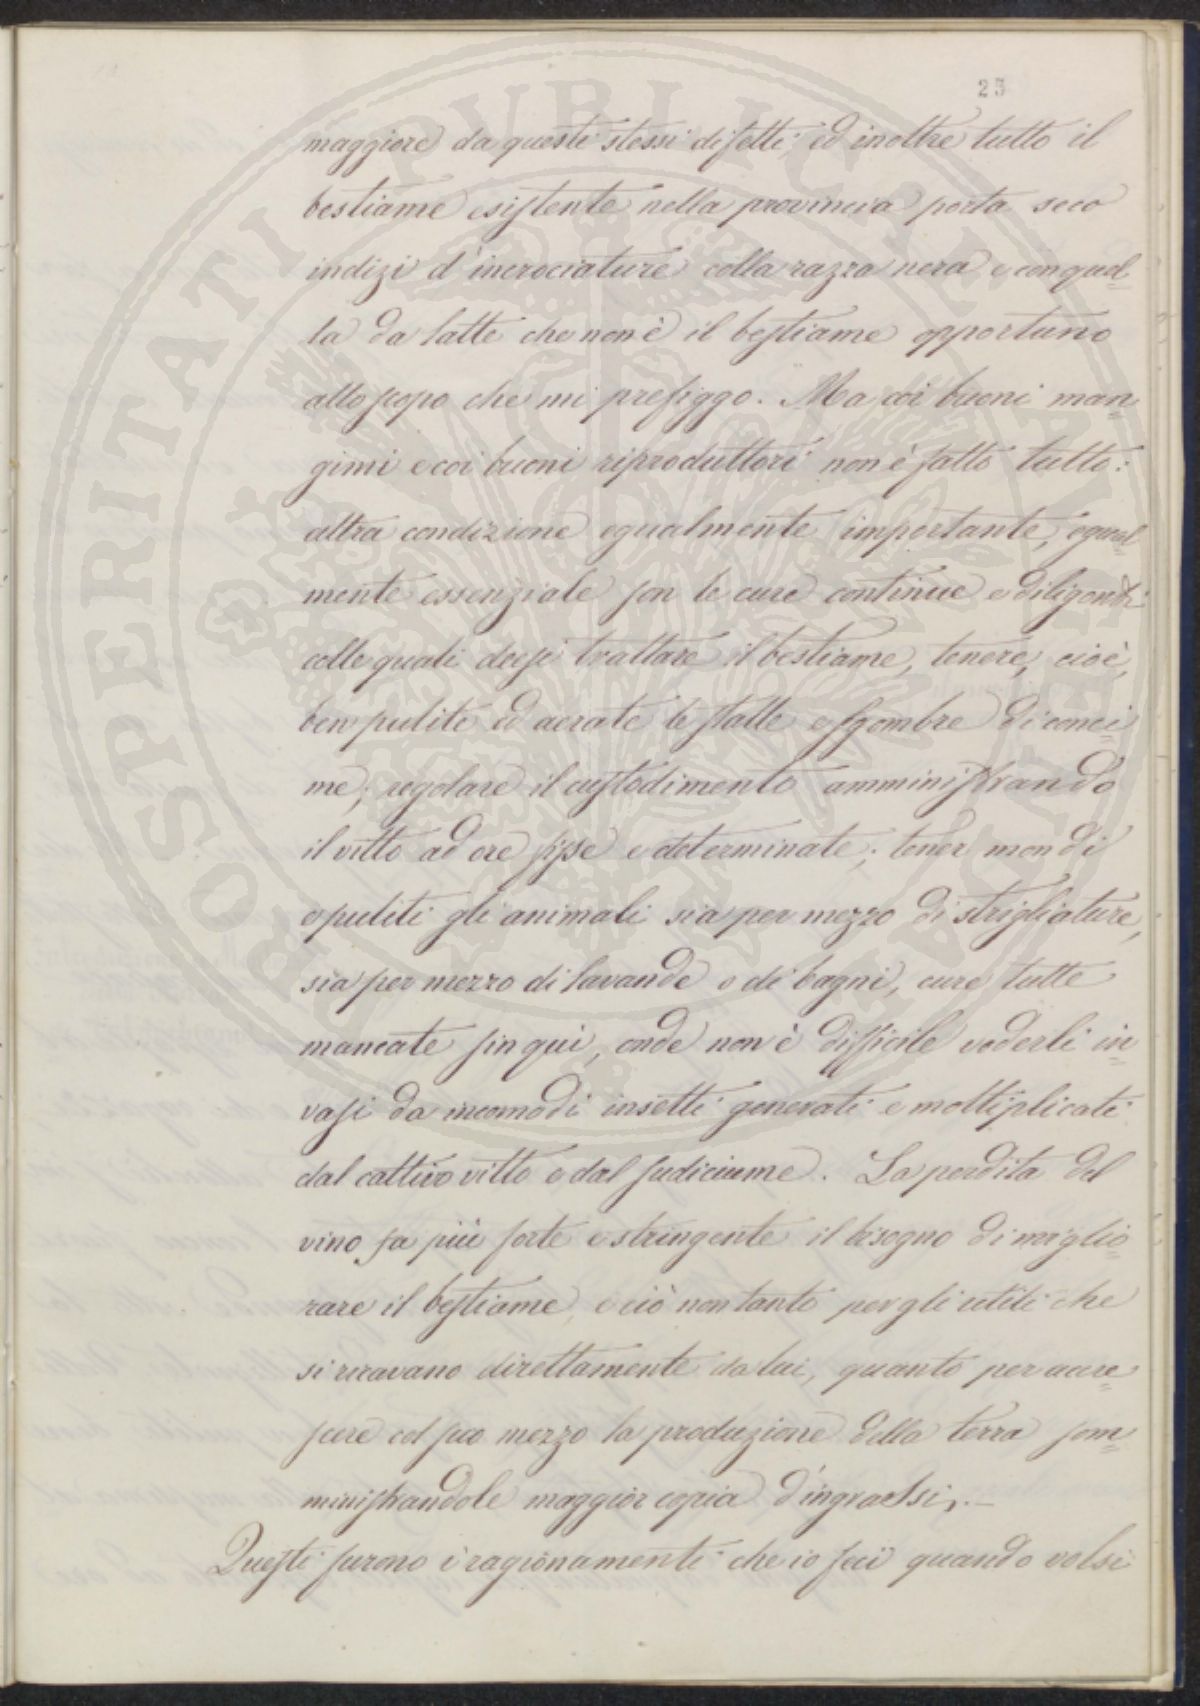 25
maggiore da questi stessi difetti; ed inoltre tutto il
bestiame esistente nella provincia porta seco
indizi d'incrociature colla razza nera e con quel=
la da latte che non è il bestiame opportuno
allo scopo che mi prefiggo. Ma coi buoni man=
gimi e coi buoni riproduttori non è fatto tutto:
altra condizione egualmente importante, egual=
mente essenziale son le cure continue e diligenti
colle quali deesi trattare il bestiame, tenere, cioè,
ben pulite ed aerate le stalle e sgombre di conci=
me; regolare il custodimento amministrando
il vitto ad ore fisse e determinate; tener mondi
e puliti gli animali sia per mezzo di strigliature,
sia per mezzo di lavande o di bagni, cure tutte
mancate fin qui, onde non è difficile vederli in=
vasi da incomodi insetti generati e moltiplicati
dal cattivo vitto e dal sudiciume. La perdita del
vino fa più forte e stringente il bisogno di miglio=
rare il bestiame, e ciò non tanto per gli utili che
si ricavano direttamente da lui, quanto per accre=
scere col suo mezzo la produzione della terra som=
ministrandole maggior copia d'ingrassi.—
Questi furono i ragionamenti che io feci quando volsi
PROSPERITATI PUBLICAE